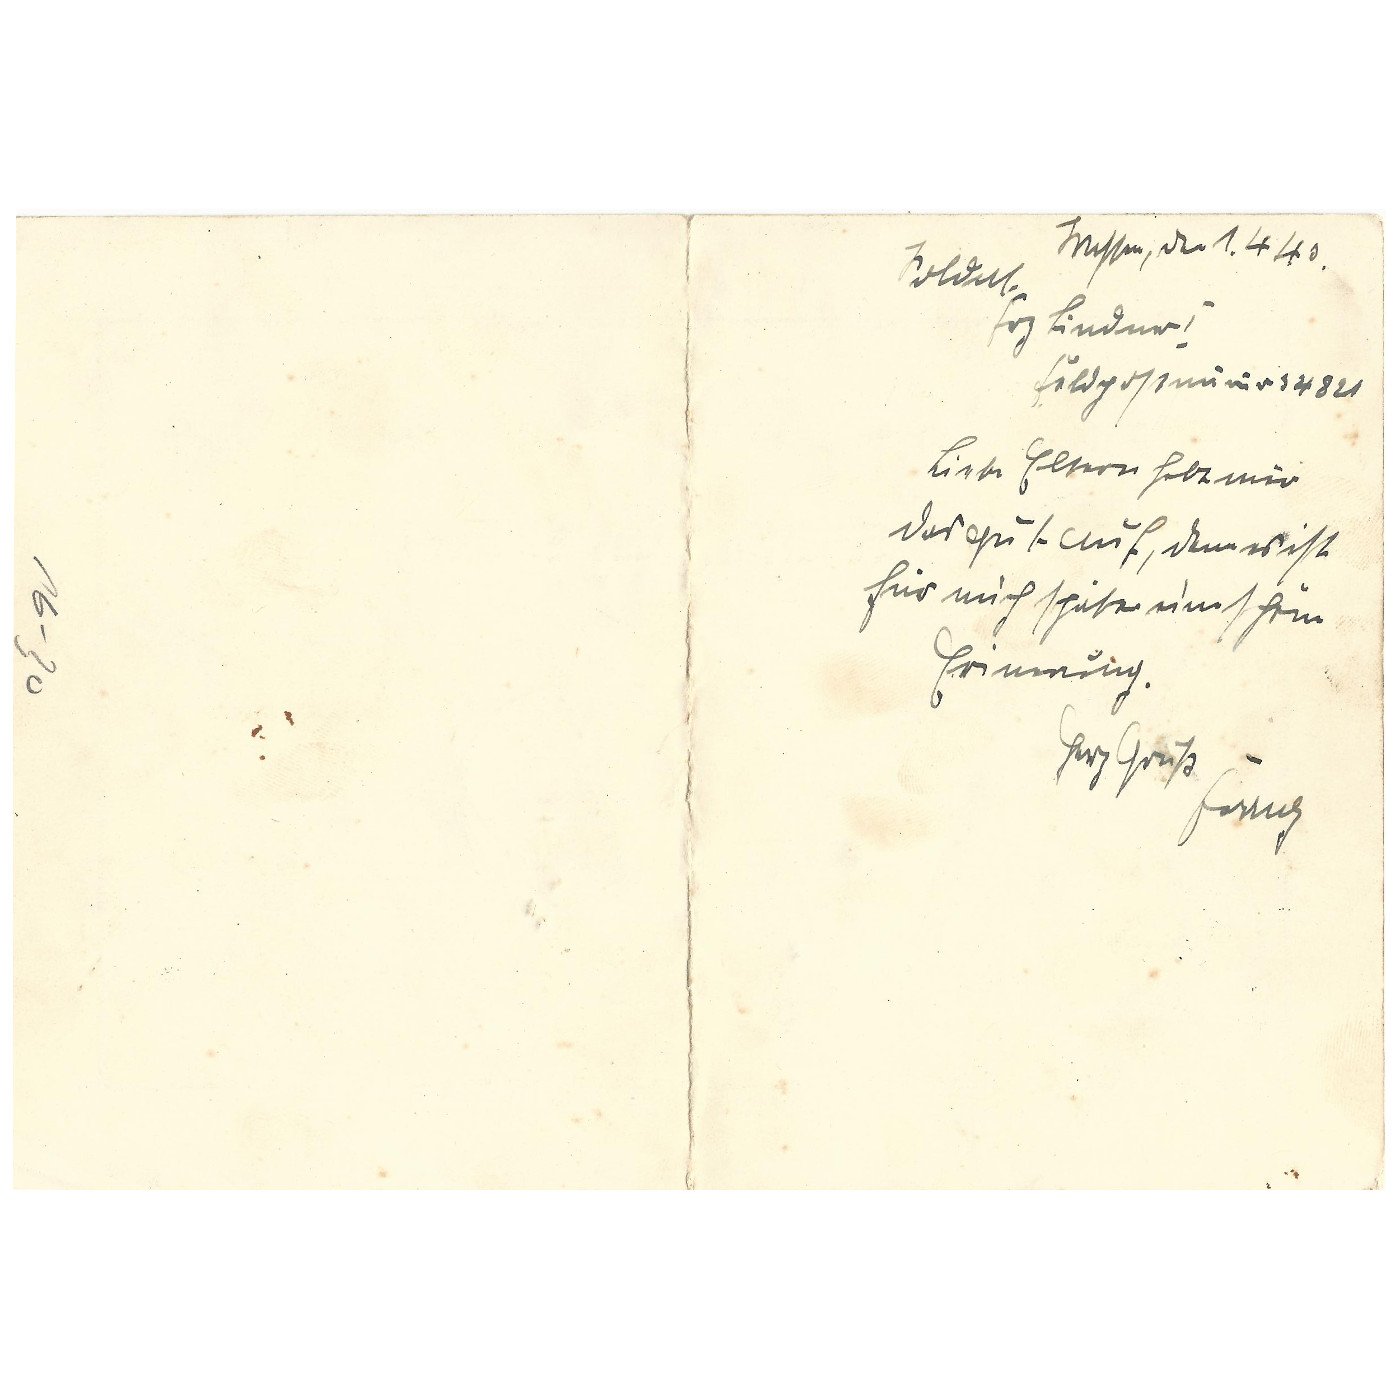 den 1. 4 40.
Soldat
Frz Lindner!
Feldpostnumer 34821
Liebe Eltern hebt mir
das gut auf, denn es ist
für mich später eine schöne
Erinerung.
Herz Gruß
Franz